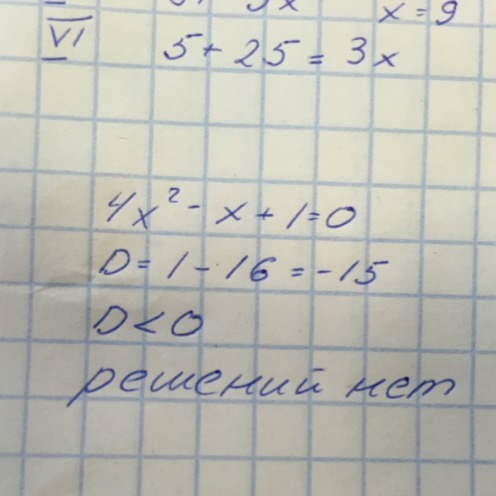 x = 9
VI
5 + 25 = 3x
4x² - x + 1 = 0
D = 1 - 16 = -15
D < 0
решений нет